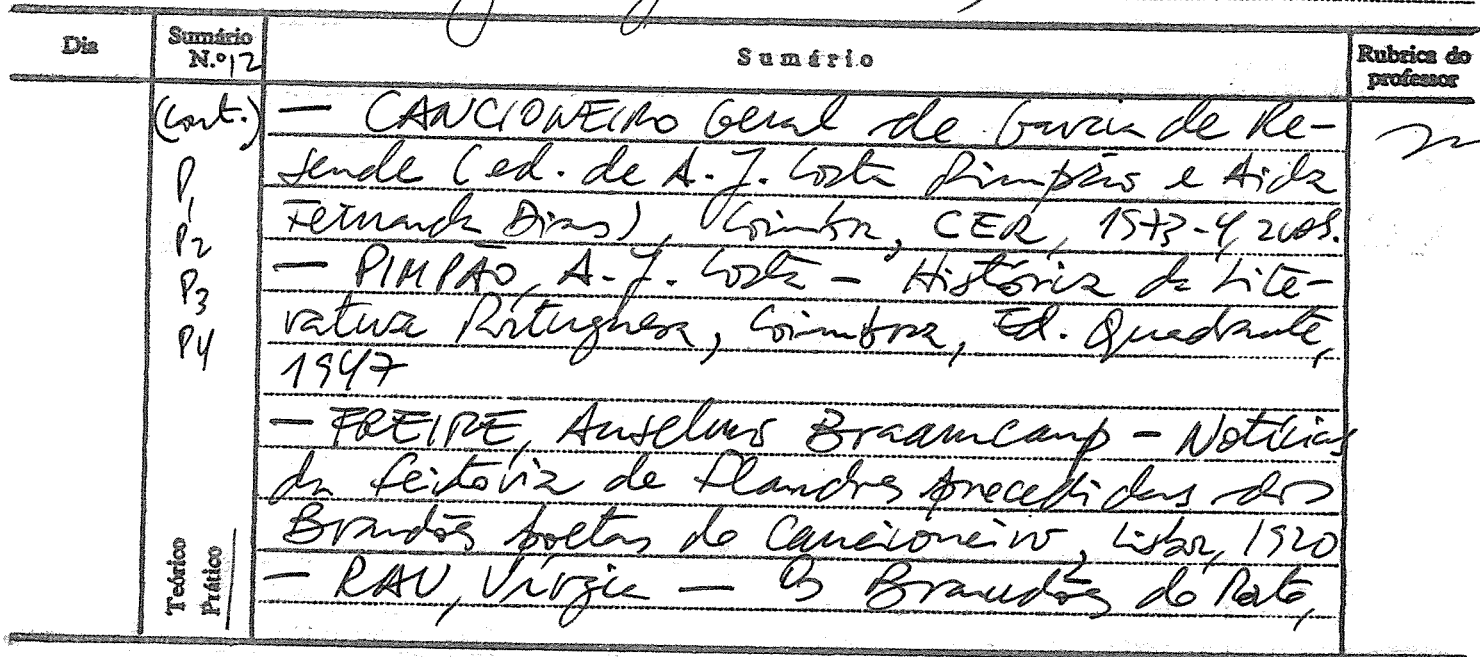 Dia Sumário N.º 12 Sumário Rubrica do professor
(cont.) — CANCIONEIRO Geral de Garcia de Re-
P1 sende (ed. de A. J. Costa Pimpão e Aida
P2 Fernanda Dias), Coimbra, CER, 1973-4, 2 vols.
P3 — PIMPÃO, A. J. Costa — História da Lite-
P4 ratura Portuguesa, Coimbra, Ed. Quadrante,
1947
— FREIRE, Anselmo Braamcamp — Notícias
da feitoria de Flandres precedidas dos
Brandões poetas do Cancioneiro, Lisboa, 1920
Teórico Prático — RAU, Virgínia — Os Brandões do Porto,